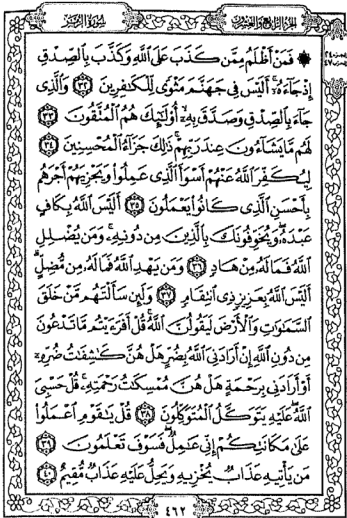 الجزء الرابع والعشرون سورة الزمر
۞ فَمَنْ أَظْلَمُ مِمَّن كَذَبَ عَلَى اللَّهِ وَكَذَّبَ بِالصِّدْقِ
إِذْ جَاءَهُ أَلَيْسَ فِي جَهَنَّمَ مَثْوًى لِلْكَافِرِينَ ٣٢ وَالَّذِي
جَاءَ بِالصِّدْقِ وَصَدَّقَ بِهِ أُولَٰئِكَ هُمُ الْمُتَّقُونَ ٣٣
لَهُم مَّا يَشَاءُونَ عِندَ رَبِّهِمْ ذَٰلِكَ جَزَاءُ الْمُحْسِنِينَ ٣٤
لِيُكَفِّرَ اللَّهُ عَنْهُمْ أَسْوَأَ الَّذِي عَمِلُوا وَيَجْزِيَهُمْ أَجْرَهُم
بِأَحْسَنِ الَّذِي كَانُوا يَعْمَلُونَ ٣٥ أَلَيْسَ اللَّهُ بِكَافٍ
عَبْدَهُ وَيُخَوِّفُونَكَ بِالَّذِينَ مِن دُونِهِ وَمَن يُضْلِلِ
اللَّهُ فَمَا لَهُ مِنْ هَادٍ ٣٦ وَمَن يَهْدِ اللَّهُ فَمَا لَهُ مِن مُّضِلٍّ
أَلَيْسَ اللَّهُ بِعَزِيزٍ ذِي انتِقَامٍ ٣٧ وَلَئِن سَأَلْتَهُم مَّنْ خَلَقَ
السَّمَاوَاتِ وَالْأَرْضَ لَيَقُولُنَّ اللَّهُ قُلْ أَفَرَأَيْتُم مَّا تَدْعُونَ
مِن دُونِ اللَّهِ إِنْ أَرَادَنِيَ اللَّهُ بِضُرٍّ هَلْ هُنَّ كَاشِفَاتُ ضُرِّهِ
أَوْ أَرَادَنِي بِرَحْمَةٍ هَلْ هُنَّ مُمْسِكَاتُ رَحْمَتِهِ قُلْ حَسْبِيَ
اللَّهُ عَلَيْهِ يَتَوَكَّلُ الْمُتَوَكِّلُونَ ٣٨ قُلْ يَا قَوْمِ اعْمَلُوا
عَلَىٰ مَكَانَتِكُمْ إِنِّي عَامِلٌ فَسَوْفَ تَعْلَمُونَ ٣٩
مَن يَأْتِيهِ عَذَابٌ يُخْزِيهِ وَيَحِلُّ عَلَيْهِ عَذَابٌ مُّقِيمٌ ٤٠
٤٦٢